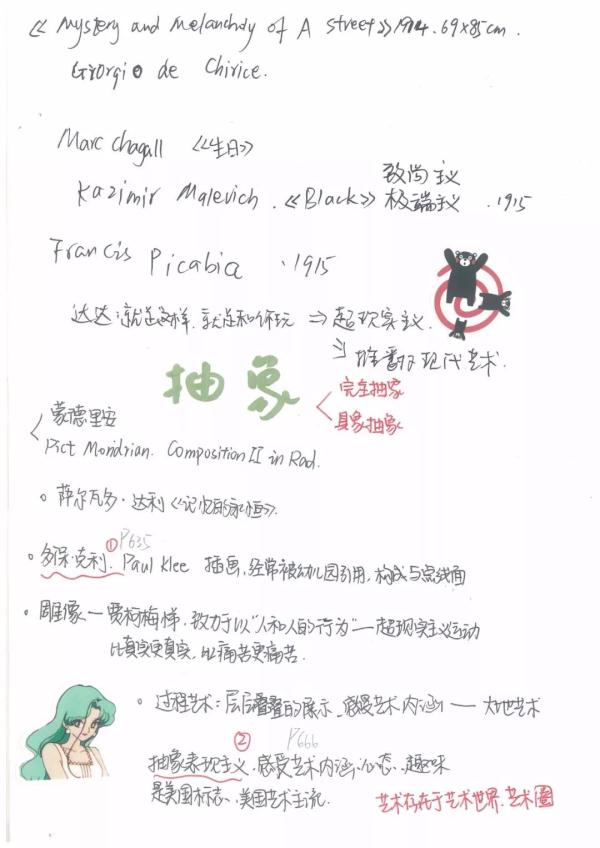 《Mystery and Melancholy of A street》1914. 69×85cm.
Giorgio de Chirice.
Marc chagall 《生日》
Kazimir Malevich. 《Black》 极端主义 . 1915
致尚主义
Francis Picabia . 1915
达达:就是这样,就是和你玩 ⇒ 超现实主义.
⇒ 推翻了现代艺术.
抽象
完全抽象
具象抽象
蒙德里安
Piet Mondrian. Composition II in Rad.
萨尔瓦多·达利《记忆的永恒》.
① P635
保·克利. Paul Klee 插画,经常被幼儿园引用,构成与点线面
雕像—贾柯梅悌,致力于以"人和人的行为"—超现实主义运动
比真实更真实,比痛苦更痛苦.
过程艺术:层层叠叠的展示、感受艺术内涵——大地艺术
② P666
抽象表现主义.感受艺术内涵,心态、趣味
是美国标志、美国艺术主流.
艺术存在于艺术世界.艺术圈